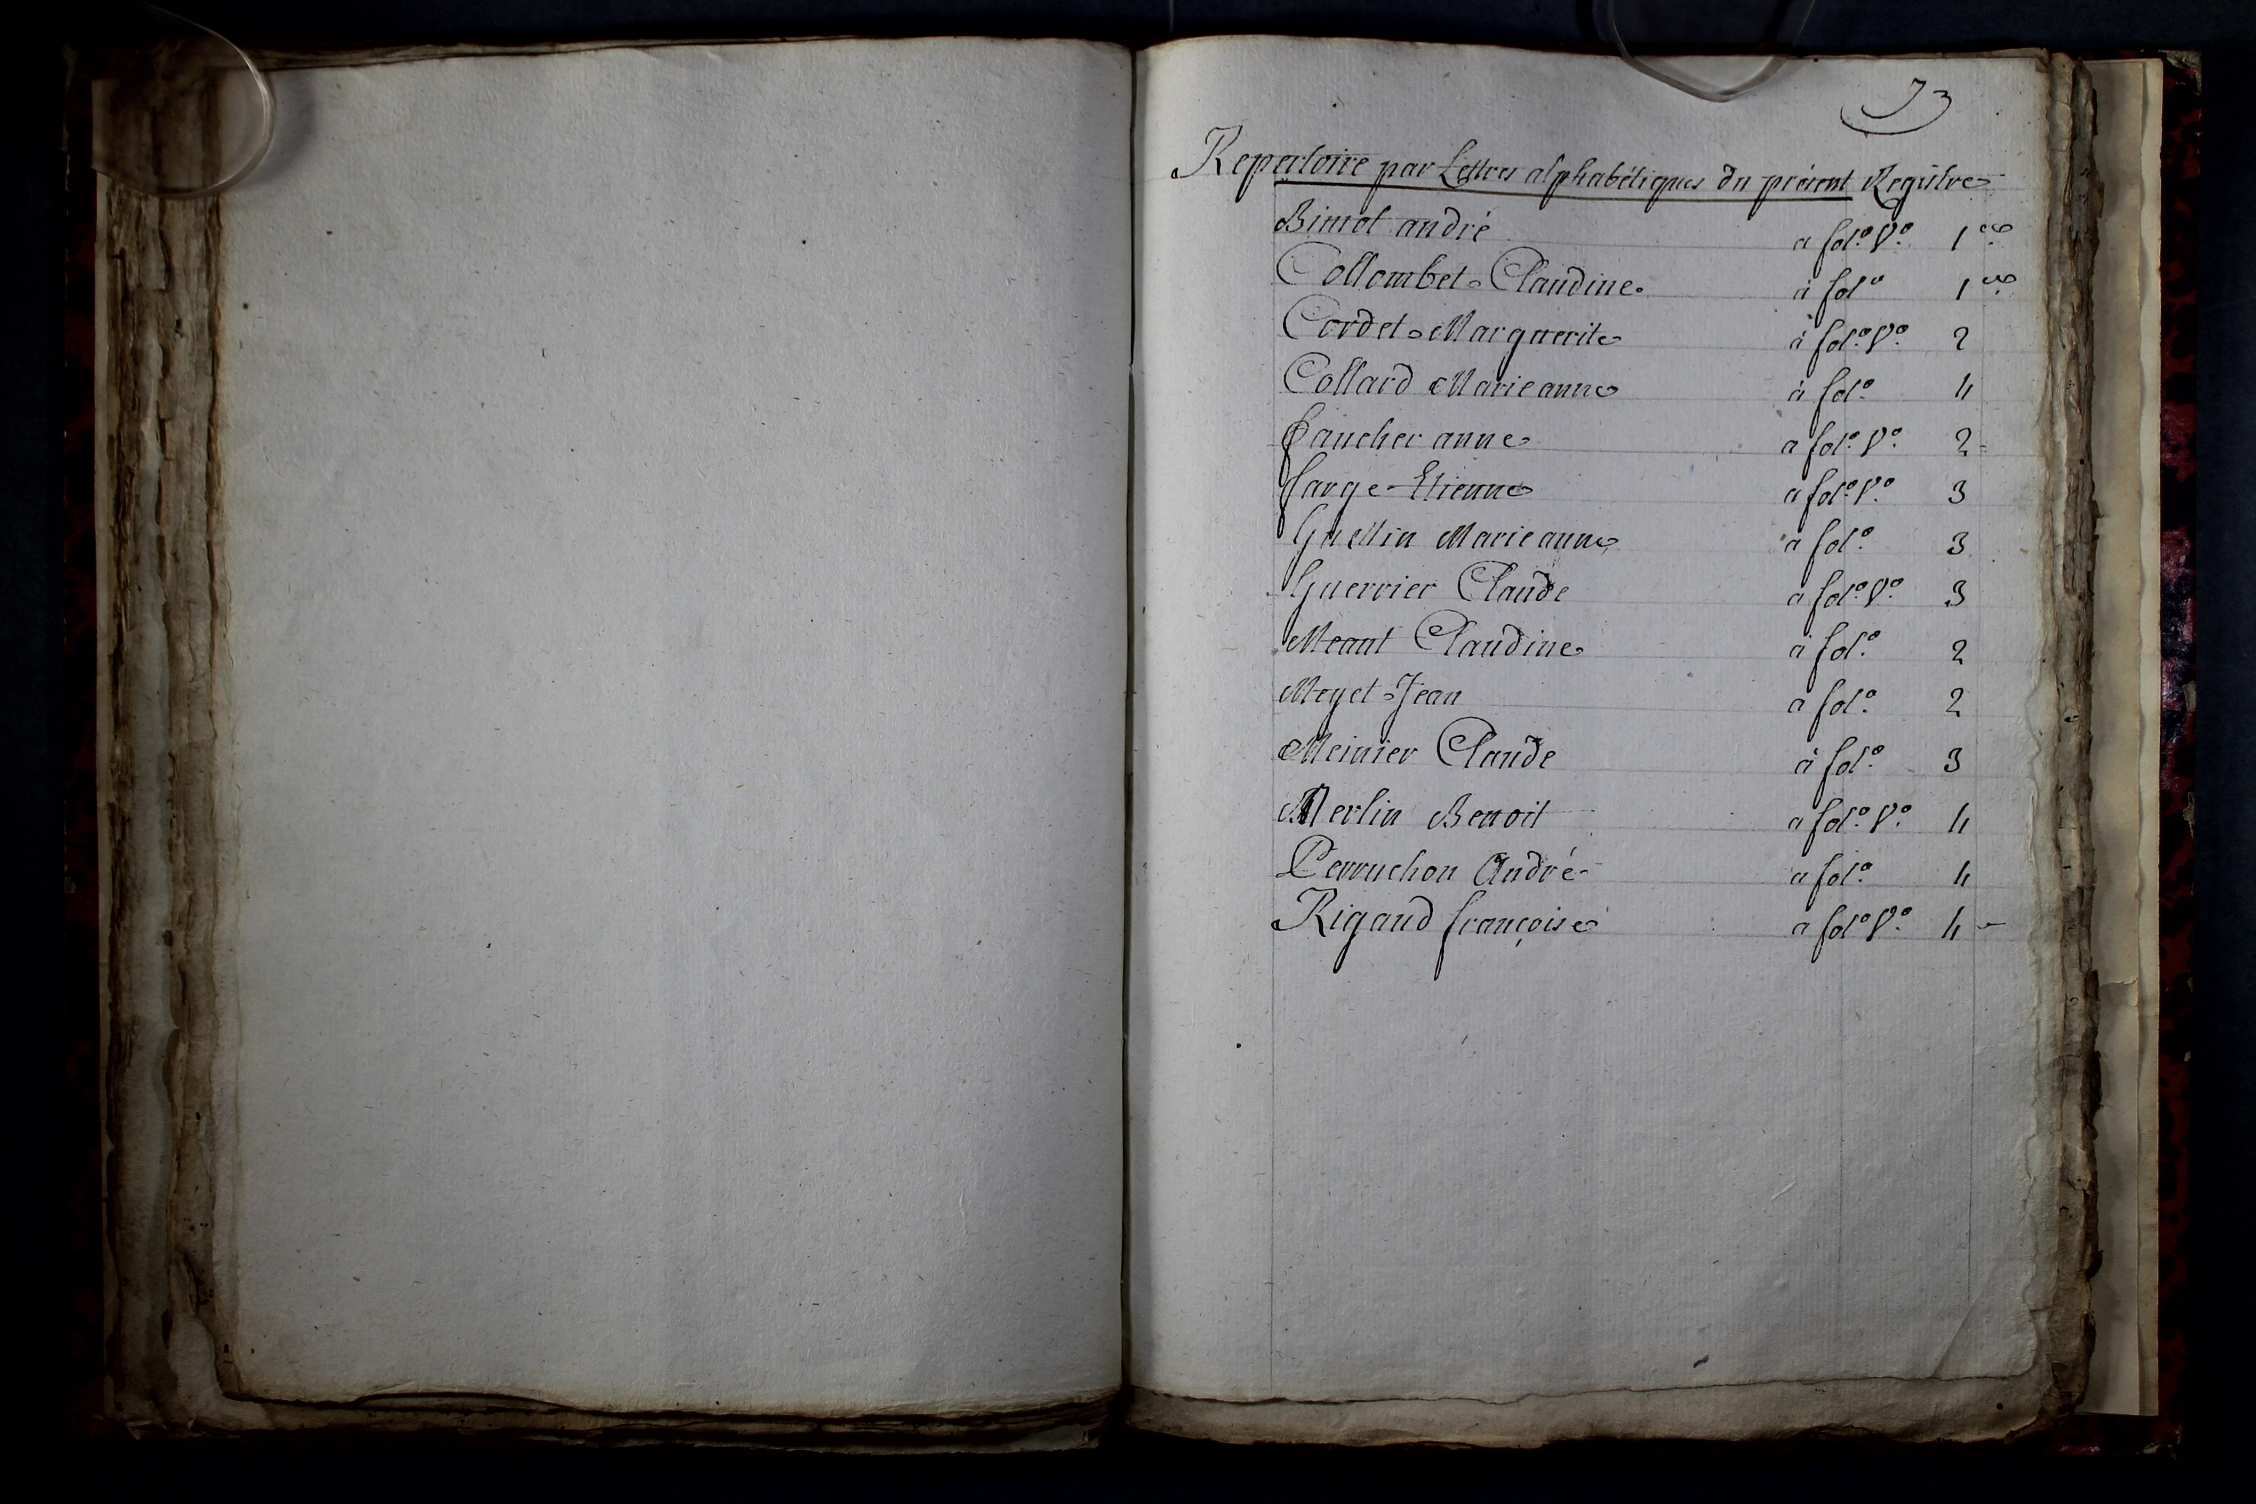 73
Repertoire par Lettres alphabétiques du présent Registre
Bimot andré a fol.º V.º 1er
Collombet Claudine à folº 1er
Cordet Marguerite à fol.º V.º 2
Collard Marie anne à fol.º 4
Faucher anne a fol.º V.º 2
farge Etienne a fol.º V.º 3
Marie anne a fol.º 3
Guerrier Claude a fol.º V.º 3
Meant Claudine à fol.º 2
Meyet Jean a fol.º 2
Meinier Claude à fol.º 3
Merlin Benoit a fol.º V.º 4
Perruchon André a fol.º 4
Rigaud françoise a fol.º V.º 4